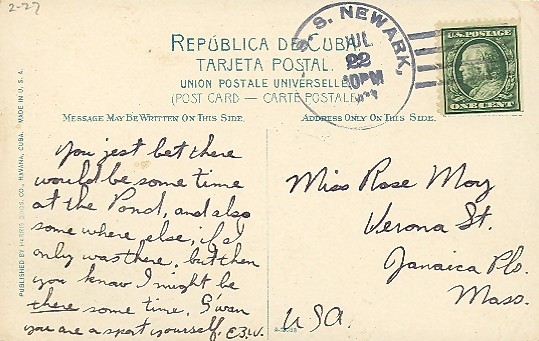 2-27
REPÚBLICA DE CUBA.
TARJETA POSTAL.
UNION POSTALE UNIVERSELLE.
(POST CARD — CARTE POSTALE)
U.S.S. NEWARK,
JUL
22
10PM
U.S. POSTAGE
ONE CENT
MESSAGE MAY BE WRITTEN ON THIS SIDE.
ADDRESS ONLY ON THIS SIDE.
PUBLISHED BY HARRIS BROS. CO., HAVANA, CUBA. MADE IN U. S. A.
You jest bet there
would be some time
at the Pond, and also
some where else, if al
only was there, but then
you know I might be
there some time. G'wan
you are a sport yourself. E.B.W.
Miss Rose Moy
Verona St.
Jamaica Pls.
Mass.
USA.